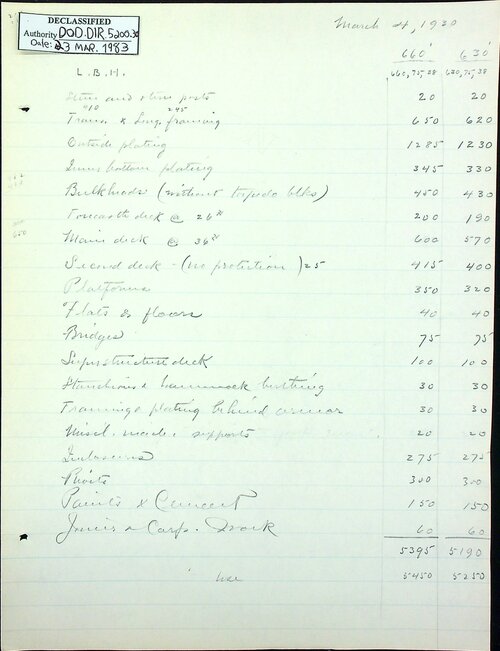 DECLASSIFIED
Authority DOD.DIR.5200.30
Date: 23 MAR. 1983
March 4, 1930
660' 630'
L.B.H. 660,75,28 630,75,28
Stem and stern posts 20 20
410 245
Trans. & Long. framing 650 620
Outside plating 1285 1230
Inner bottom plating 345 330
Bulkheads (without torpedo blks) 450 430
Forecastle deck @ 26# 200 190
Main deck @ 36# 600 570
Second deck - (no protection) 25 415 400
Platforms 350 320
Flats & floors 40 40
Bridges 75 75
Superstructure deck 100 100
Stanchions & hammock berthing 30 30
Framing & plating behind armor 30 30
Miscl. supports 20 20
Inclosures 275 275
Rivets 300 300
Paints & Cement 150 150
Joiner & Carp. Work 60 60
5395 5190
Use 5450 5250